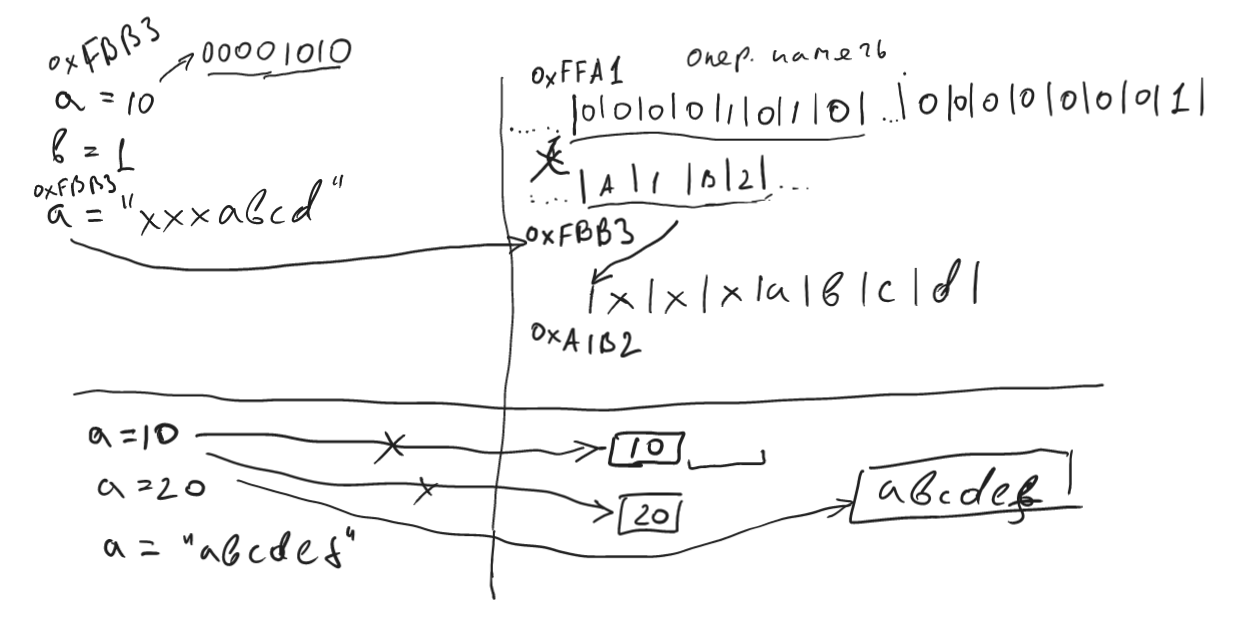 0xFBB3
00001010
a = 10
b = 1
0xFBB3
a = "xxxabcd"
Опер. память
0xFFA1
.....|0|0|0|0|1|0|1|0| ... |0|0|0|0|0|0|0|1|
....|A|1|B|2|...
0xFBB3
|x|x|x|a|b|c|d|
0xA1B2
a=10
10
a=20
20
abcdef
a = "abcdef"